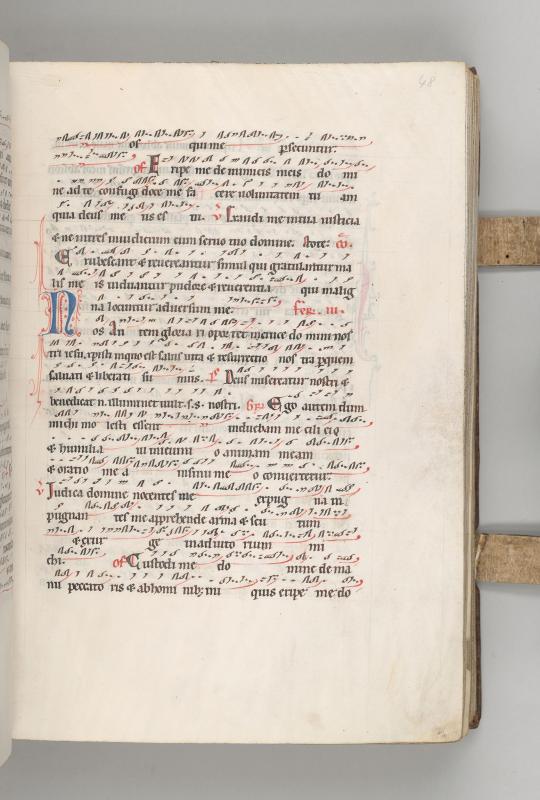 48
os qui me psecuntur.
of Eripe me de inimicis meis do mi
ne ad te confugi doce me fa cere voluntatem tu am
quia deus me us es tu. v Exaudi me in tua iusticia
& ne intres in iudicium cum seruo tuo domine. co.
Erubescant & reuereantur simul qui gratulantur ma
lis me is induantur pudore & reuerentia qui malig
na locuntur aduersum me. fer. iii.
Nos au tem gloria ri oportet in cruce do mini nos
tri iesu xpisti in quo est salus uita & resurrectio nos tra p quem
saluati & liberati su mus. ps Deus misereatur nostri &
benedicat n. illuminet uult. s. s. nostri. Gr Ego autem dum
michi mo lesti essent induebam me cili cio
& humilia in ieiunio animam meam
& oratio me a in sinu me o conuertetur.
v Iudica domine nocentes me expug na in
pugnan tes me apprehende arma & scu tum
& exur ge in adiuto rium mi
chi. of Custodi me do mine de ma
nu peccato ris & ab homi nib; ini quis eripe me do